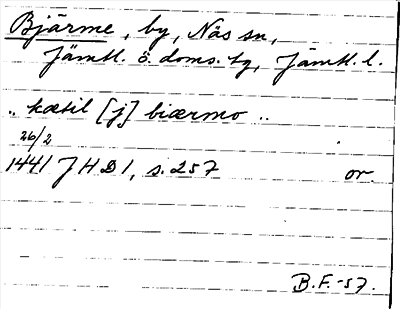 Bjärme, by, Näs sn,
Jämtl. ö. doms. tg, Jämtl. l.
.. kætil [j] biærmo ..
26/2
1441 JHD 1, s. 257 or.
B.F.-57.